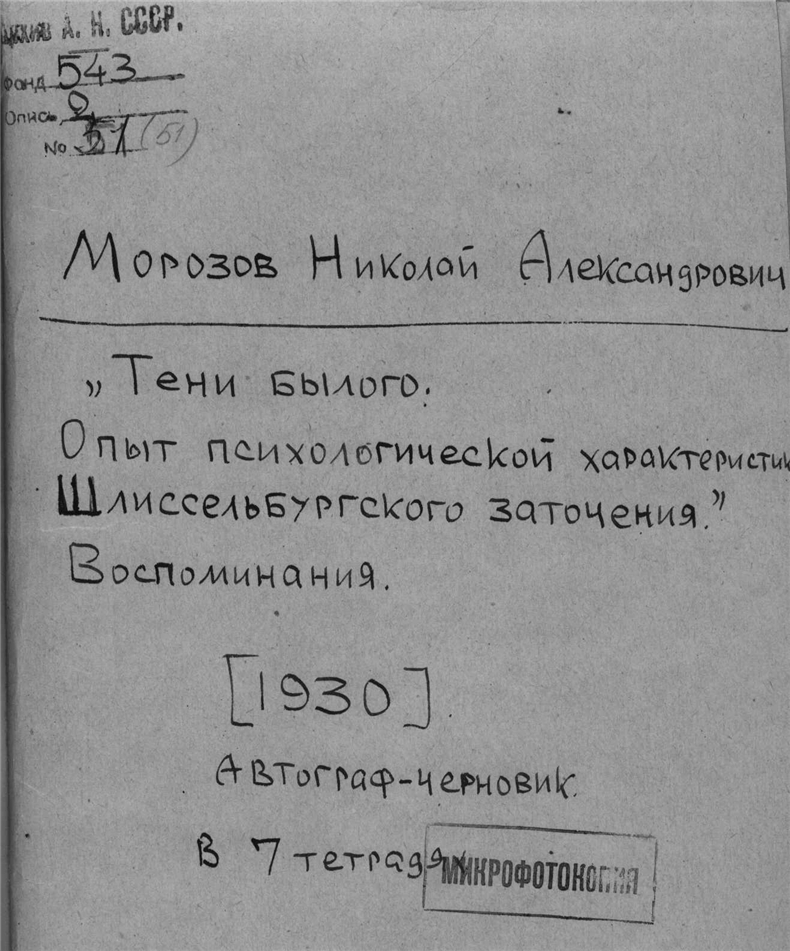 Архив А. Н. СССР.
Фонд 543
Опись 2
No 51 (51)
Морозов Николай Александрович
„Тени былого.
Опыт психологической характеристик
Шлиссельбургского заточения.”
Воспоминания.
[1930].
Автограф-черновик.
В 7 тетрадях
МИКРОФОТОКОПИЯ